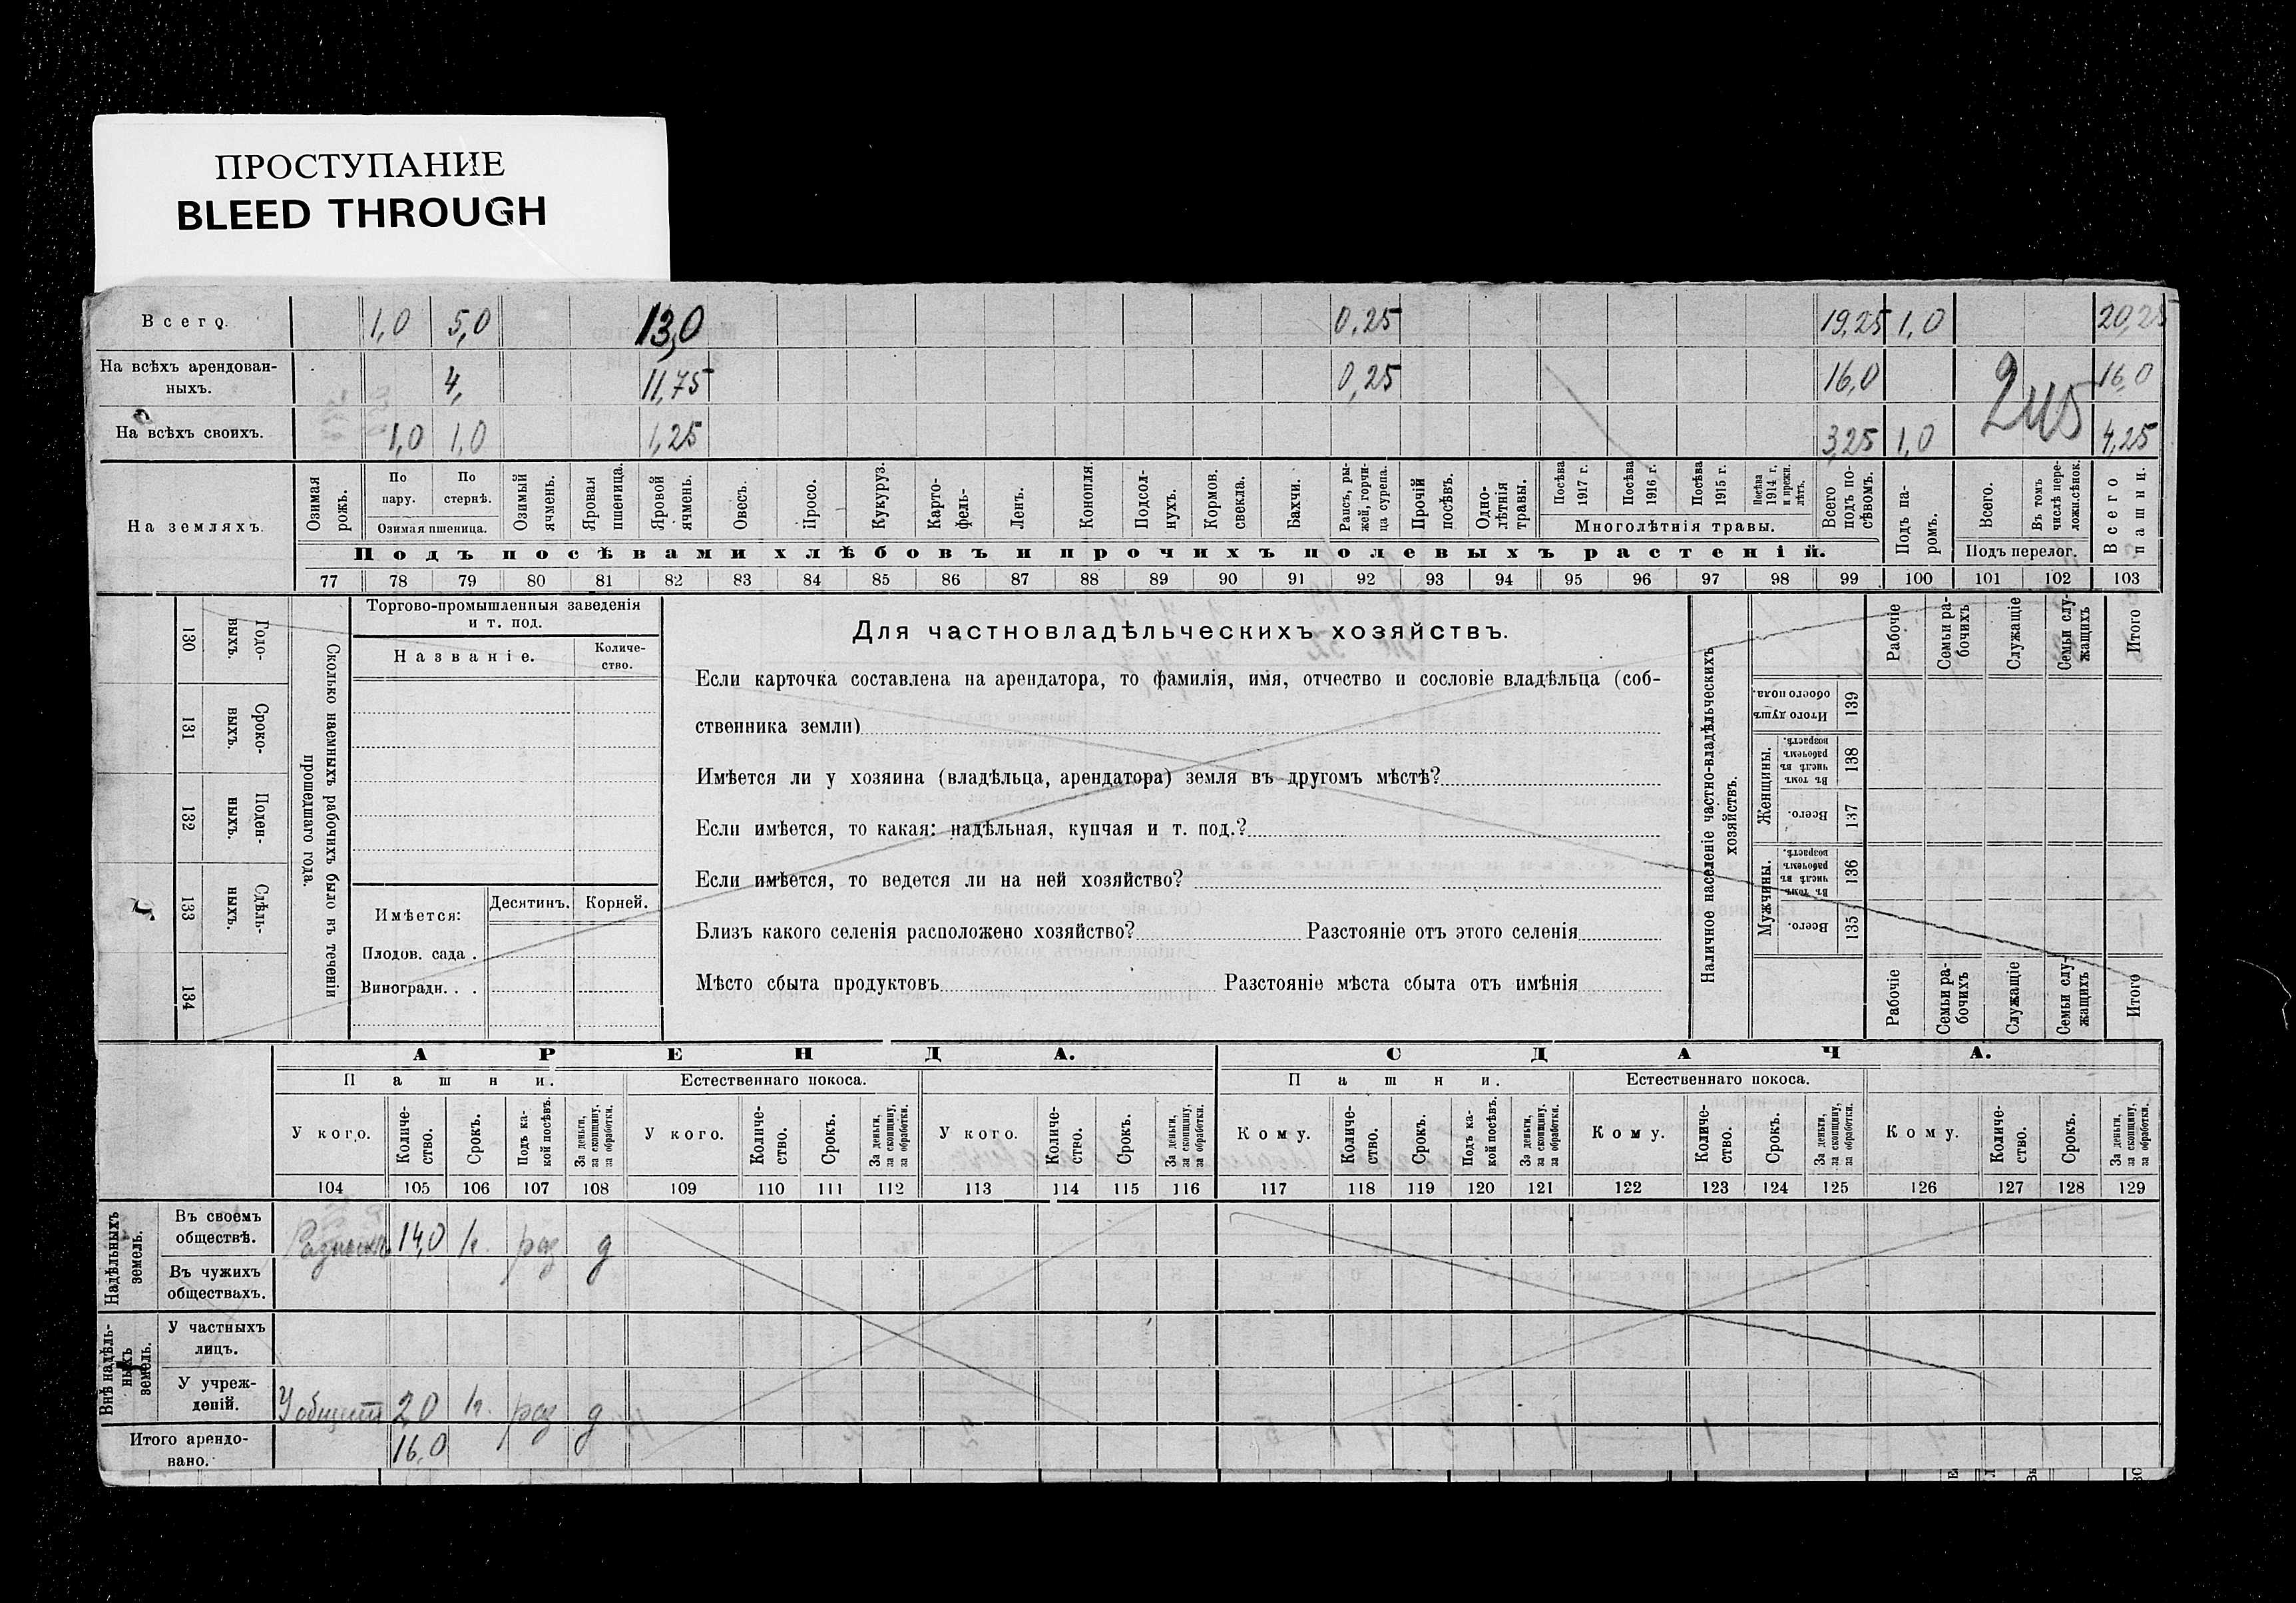 ПРОСТУПАНИЕ
BLEED THROUGH
Всего. 1,0 5,0 13,0 0,25 19,25 1,0 20,25
На всѣхъ арендован-
ныхъ. 4, 11,75 0,25 16,0 16,0
245
На всѣхъ своихъ. 1,0 1,0 1,25 3,25 1,0 4,25
На земляхъ.
Озимая рожь.
По пару.
По стернѣ.
Озимая пшеница.
Озимый ячмень.
Яровая пшеница.
Яровой ячмень.
Овесъ.
Просо.
Кукуруз.
Карто-
фель-
Ленъ.
Конопля.
Подсол-
нухъ.
Кормов. свекла.
Бахчи.
Рапсъ, ры-
жей, горчи-
ца сурепа.
Прочій посѣвъ.
Одно-
лѣтнія травы.
Посѣва 1917 г.
Посѣва 1916 г.
Посѣва 1915 г.
Посѣва 1914 г. и прежн. лѣтъ.
Многолѣтнія травы.
Всего подъ по-
сѣвомъ.
Подъ па-
ромъ.
Всего.
Въ томъ числѣ пере-
ложн.сѣнок.
Подъ перелог.
Всего пашни.
Подъ посѣвами хлѣбовъ и прочихъ полевыхъ растеній.
77 78 79 80 81 82 83 84 85 86 87 88 89 90 91 92 93 94 95 96 97 98 99 100 101 102 103
130 Годо-
выхъ.
131 Сроко-
выхъ.
132 Поден-
ныхъ.
133 Сдѣль-
ныхъ.
134
Сколько наемныхъ рабочихъ было въ теченіи
прошедшаго года.
Торгово-промышленныя заведенія
и т. под.
Названіе.
Количе-
ство.
Имѣется:
Десятин. Корней.
Плодов. сада .
Виноградн. . .
Для частновладѣльческихъ хозяйствъ.
Если карточка составлена на арендатора, то фамилія, имя, отчество и сословіе владѣльца (соб-
ственника земли)
Имѣется ли у хозяина (владѣльца, арендатора) земля въ другомъ мѣстѣ?
Если имѣется, то какая: надѣльная, купчая и т. под.?
Если имѣется, то ведется ли на ней хозяйство?
Близъ какого селенія расположено хозяйство? Разстояніе отъ этого селенія
Мѣсто сбыта продуктовъ Разстояніе мѣста сбыта отъ имѣнія
Наличное населеніе частно-владѣльческихъ
хозяйствъ.
Рабочіе
Семьи ра-
бочихъ
Служащіе
Семьи слу-
жащихъ
Итого
Итого душъ обоего пола. 139
Женщины.
Въ томъ числѣ въ рабочемъ возрастѣ. 138
Всего. 137
Мужчины.
Въ томъ числѣ въ рабочемъ возрастѣ. 136
Всего. 135
Рабочіе
Семьи ра-
бочихъ
Служащіе
Семьи слу-
жащихъ
Итого
АРЕНДА. СДАЧА.
Пашни. Естественнаго покоса. Пашни. Естественнаго покоса.
У кого.
Количе-
ство.
Срокъ.
Подъ ка-
кой посѣвъ.
За деньги,
за скопщину,
за обработки.
У кого.
Количе-
ство.
Срокъ.
За деньги,
за скопщину,
за обработки.
У кого.
Количе-
ство.
Срокъ.
За деньги,
за скопщину,
за обработки.
Кому.
Количе-
ство.
Срокъ.
Подъ ка-
кой посѣвъ.
За деньги,
за скопщину,
за обработки.
Кому.
Количе-
ство.
Срокъ.
За деньги,
за скопщину,
за обработки.
Кому.
Количе-
ство.
Срокъ.
За деньги,
за скопщину,
за обработки.
104 105 106 107 108 109 110 111 112 113 114 115 116 117 118 119 120 121 122 123 124 125 126 127 128 129
Надѣльныхъ
земель.
Въ своемъ
обществѣ. 14,0 раз д
Въ чужихъ
обществахъ.
Внѣ надѣль-
ныхъ
земель.
У частныхъ
лицъ.
У учреж-
деній. 2,0 раз д
Итого арендо-
вано. 16,0